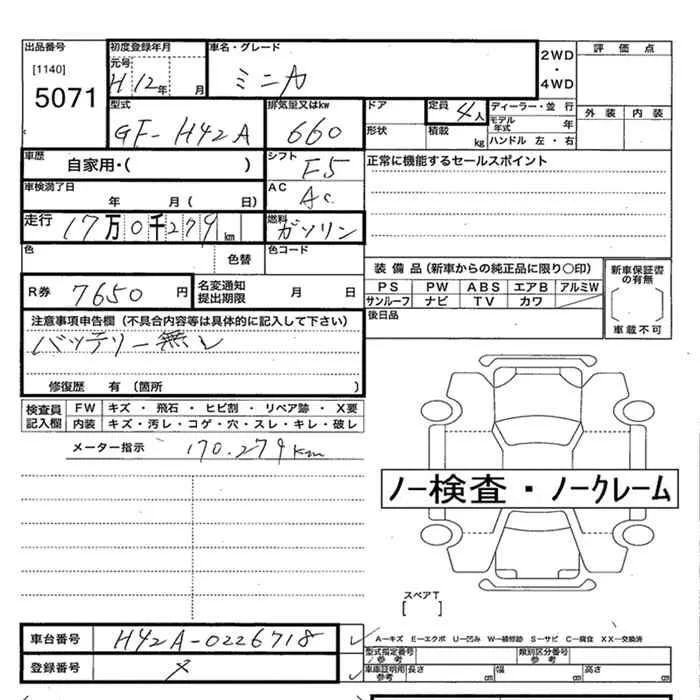 出品番号 初度登録年月 車名・グレード 2WD ・ 4WD 評価点
[1140] 元号
5071 H 12年 月 ミニカ 外装 内装
型式 排気量又はkw ドア 定員 4人 ディーラー・並行
GF-H42A 660 形状 積載 kg モデル年式 年
ハンドル 左・右
車歴 自家用・( ) シフト F5 正常に機能するセールスポイント
車検満了日 年 月( 日) AC AC
走行 17万0千279km 燃料 ガソリン
色 色替 色コード
装備品(新車からの純正品に限り○印) 新車保証書の有無
R券 7650円 名変通知提出期限 月 日 PS PW ABS エアB アルミW
サンルーフ ナビ TV カワ
注意事項申告欄(不具合内容等は具体的に記入して下さい) 後日品 車載不可
バッテリー無し
修復歴 有(箇所 )
検査員記入欄 FW キズ・飛石・ヒビ割・リペア跡・X要
内装 キズ・汚レ・コゲ・穴・スレ・キレ・破レ
メーター指示 170.279km
ノー検査・ノークレーム
スペアT
[ ]
車台番号 H42A-0226718 A―キズ E―エクボ U―凹み W―補修跡 S―サビ C―腐食 XX―交換済
型式指定番号 参考 類別区分番号 参考
登録番号 メ 車庫証明用 参考 長さ cm 幅 cm 高さ cm